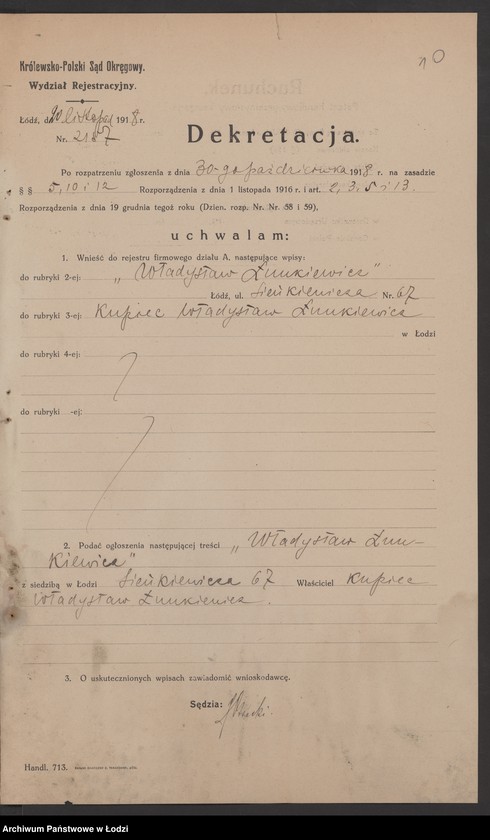 10
Królewsko-Polski Sąd Okręgowy.
Wydział Rejestracyjny.
Łódź, d. 20 listopad 1918 r.
Nr.
Dekretacja.
Po rozpatrzeniu zgłoszenia z dnia 30-go października 1918 r. na zasadzie
§ § 5, 10 i 12 Rozporządzenia z dnia 1 listopada 1916 r. i art. 2, 3, 5 i 13.
Rozporządzenia z dnia 19 grudnia tegoż roku (Dzien. rozp. Nr. Nr. 58 i 59),
uchwalam:
1. Wnieść do rejestru firmowego działu A, następujące wpisy:
do rubryki 2-ej: „Władysław Żunkiewicz”
Łódź, ul. Sieńkiewicza Nr. 67
do rubryki 3-ej: Kupiec Władysław Żunkiewicz
w Łodzi
do rubryki 4-ej:
do rubryki -ej:
2. Podać ogłoszenia następującej treści „Władysław Żun-
kiewicz”
z siedzibą w Łodzi Sieńkiewicza 67 Właściciel Kupiec
Władysław Żunkiewicz.
3. O uskutecznionych wpisach zawiadomić wnioskodawcę.
Sędzia:
Handl. 713.
Archiwum Państwowe w Łodzi